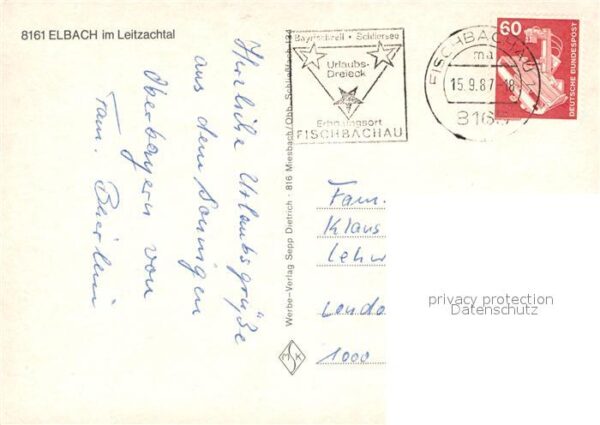 8161 ELBACH im Leitzachtal
Herzliche Urlaubsgrüße
aus dem sonnigen
Oberbayern von
Fam.
Werbe-Verlag Sepp Dietrich · 816 Miesbach/Obb. Schließfach 184
Bayrischzell · Schliersee
Urlaubs-
Dreieck
Erholungsort
FISCHBACHAU
FISCHBACHAU
ma
15.9.87-18
816
60
DEUTSCHE BUNDESPOST
Fam.
Klaus
Lehr
Londo
1000
privacy protection
Datenschutz